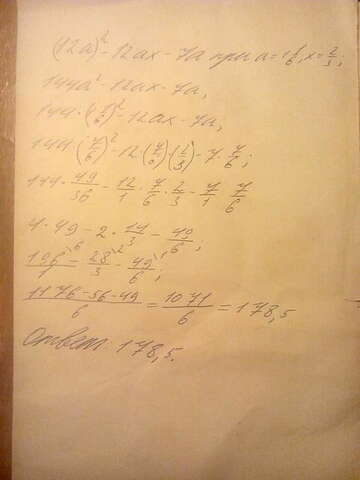 (12a)² - 12ax - 7a при a = 1 1/6, x = 2/3;
144a² - 12ax - 7a;
144 · (7/6)² - 12ax - 7a;
144 · (7/6)² - 12 · (7/6) · (2/3) - 7 · 7/6;
144 · 49/36 - 12/1 · 7/6 · 2/3 - 7/1 · 7/6
4 · 49 - 2 · 14/3 - 49/6;
196/1 - 28/3 - 49/6;
1176 - 56 - 49/6 = 1071/6 = 178,5
Ответ: 178,5.